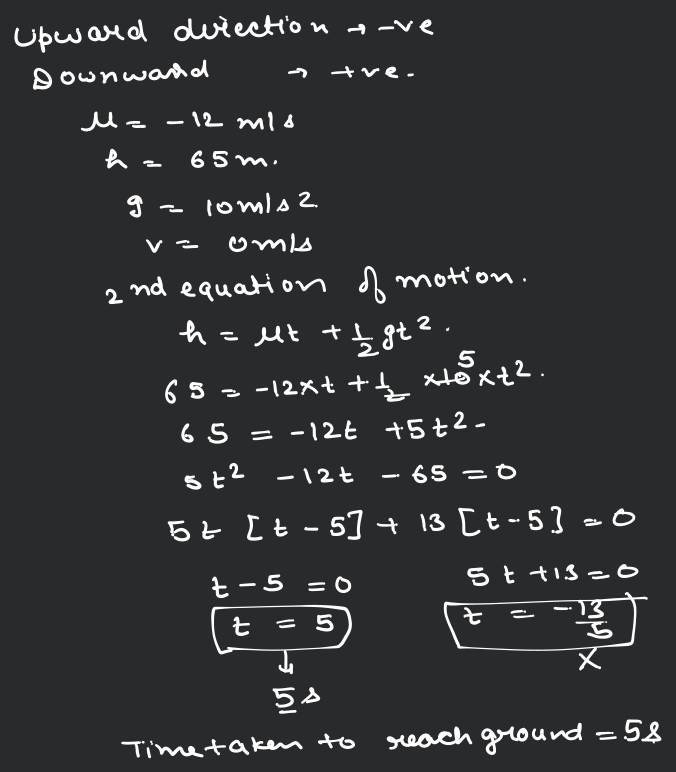 Upward direction → -ve
Downward → +ve.
u = -12 m/s
h = 65m.
g = 10m/s2
v = 0m/s
2nd equation of motion.
h = ut + 1/2 gt².
65 = -12xt + 1/2 x10 5 xt².
65 = -12t +5t²-
5t² -12t - 65 = 0
5t [t - 5] + 13 [t-5] = 0
t - 5 = 0 5t +13=0
t = 5 t = -13/5
↓ x
5s
Time taken to reach ground = 5s